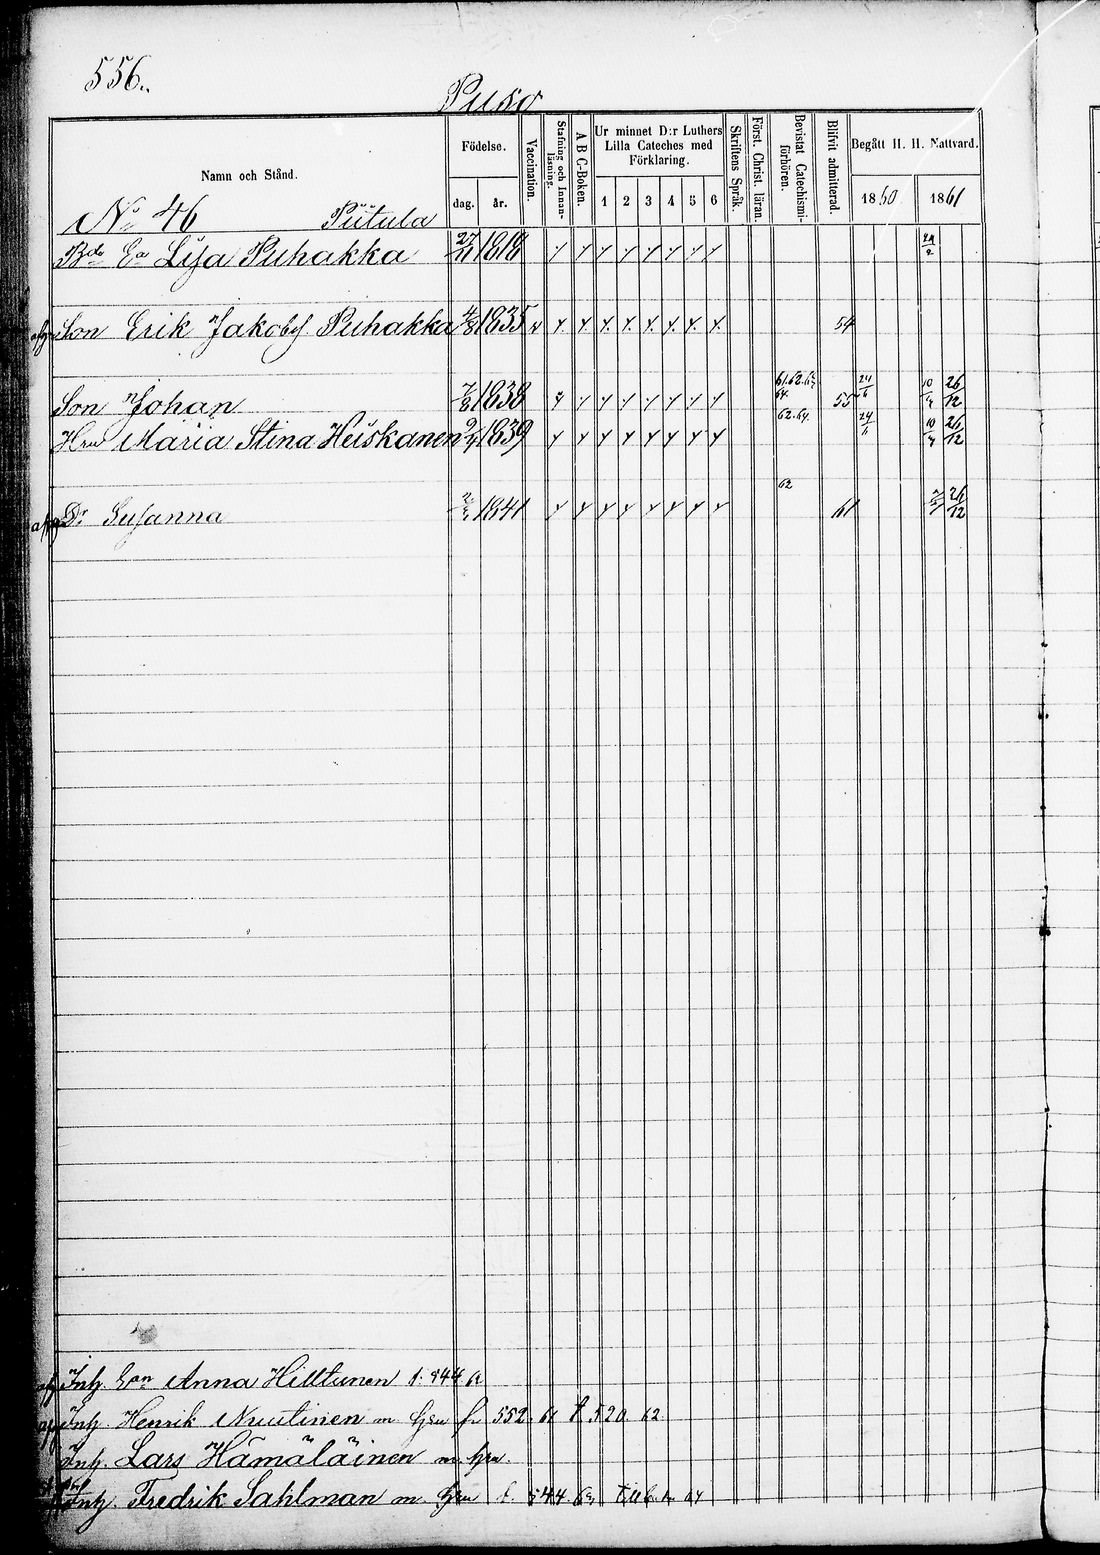 556.
Puso
Namn och Stånd.
Födelse.
dag. år.
Vaccination.
Stafning och Innanläsning.
A B C-Boken.
Ur minnet D:r Luthers Lilla Cateches med Förklaring.
1 2 3 4 5 6
Skriftens Språk.
Först. Christ. läran.
Bevistat Catechismiförhören.
Blifvit admitterad.
Begått H. H. Nattvard.
1860 1861
No 46 Putula
Bde Ea Lisa Puhakka 27/11 1818
Son Erik Jakobss. Puhakka 4/8 1835 54
Son Johan 7/8 1838 61.62.63 64. 55 24/6 10/4 26/12
Hru Maria Stina Heiskanen 9/4 1839 62.64. 24/6 10/4 26/12
Dr Susanna 1841 62 61 26/12
Inh. Ean Anna Hilttunen f. 544 62
Inh. Henrik Nuutinen m hru fr 552. 61 t 520 62
Inh. Lars Hämäläinen m. hru.
Inh. Fredrik Sahlman m. hru f. 544. 64